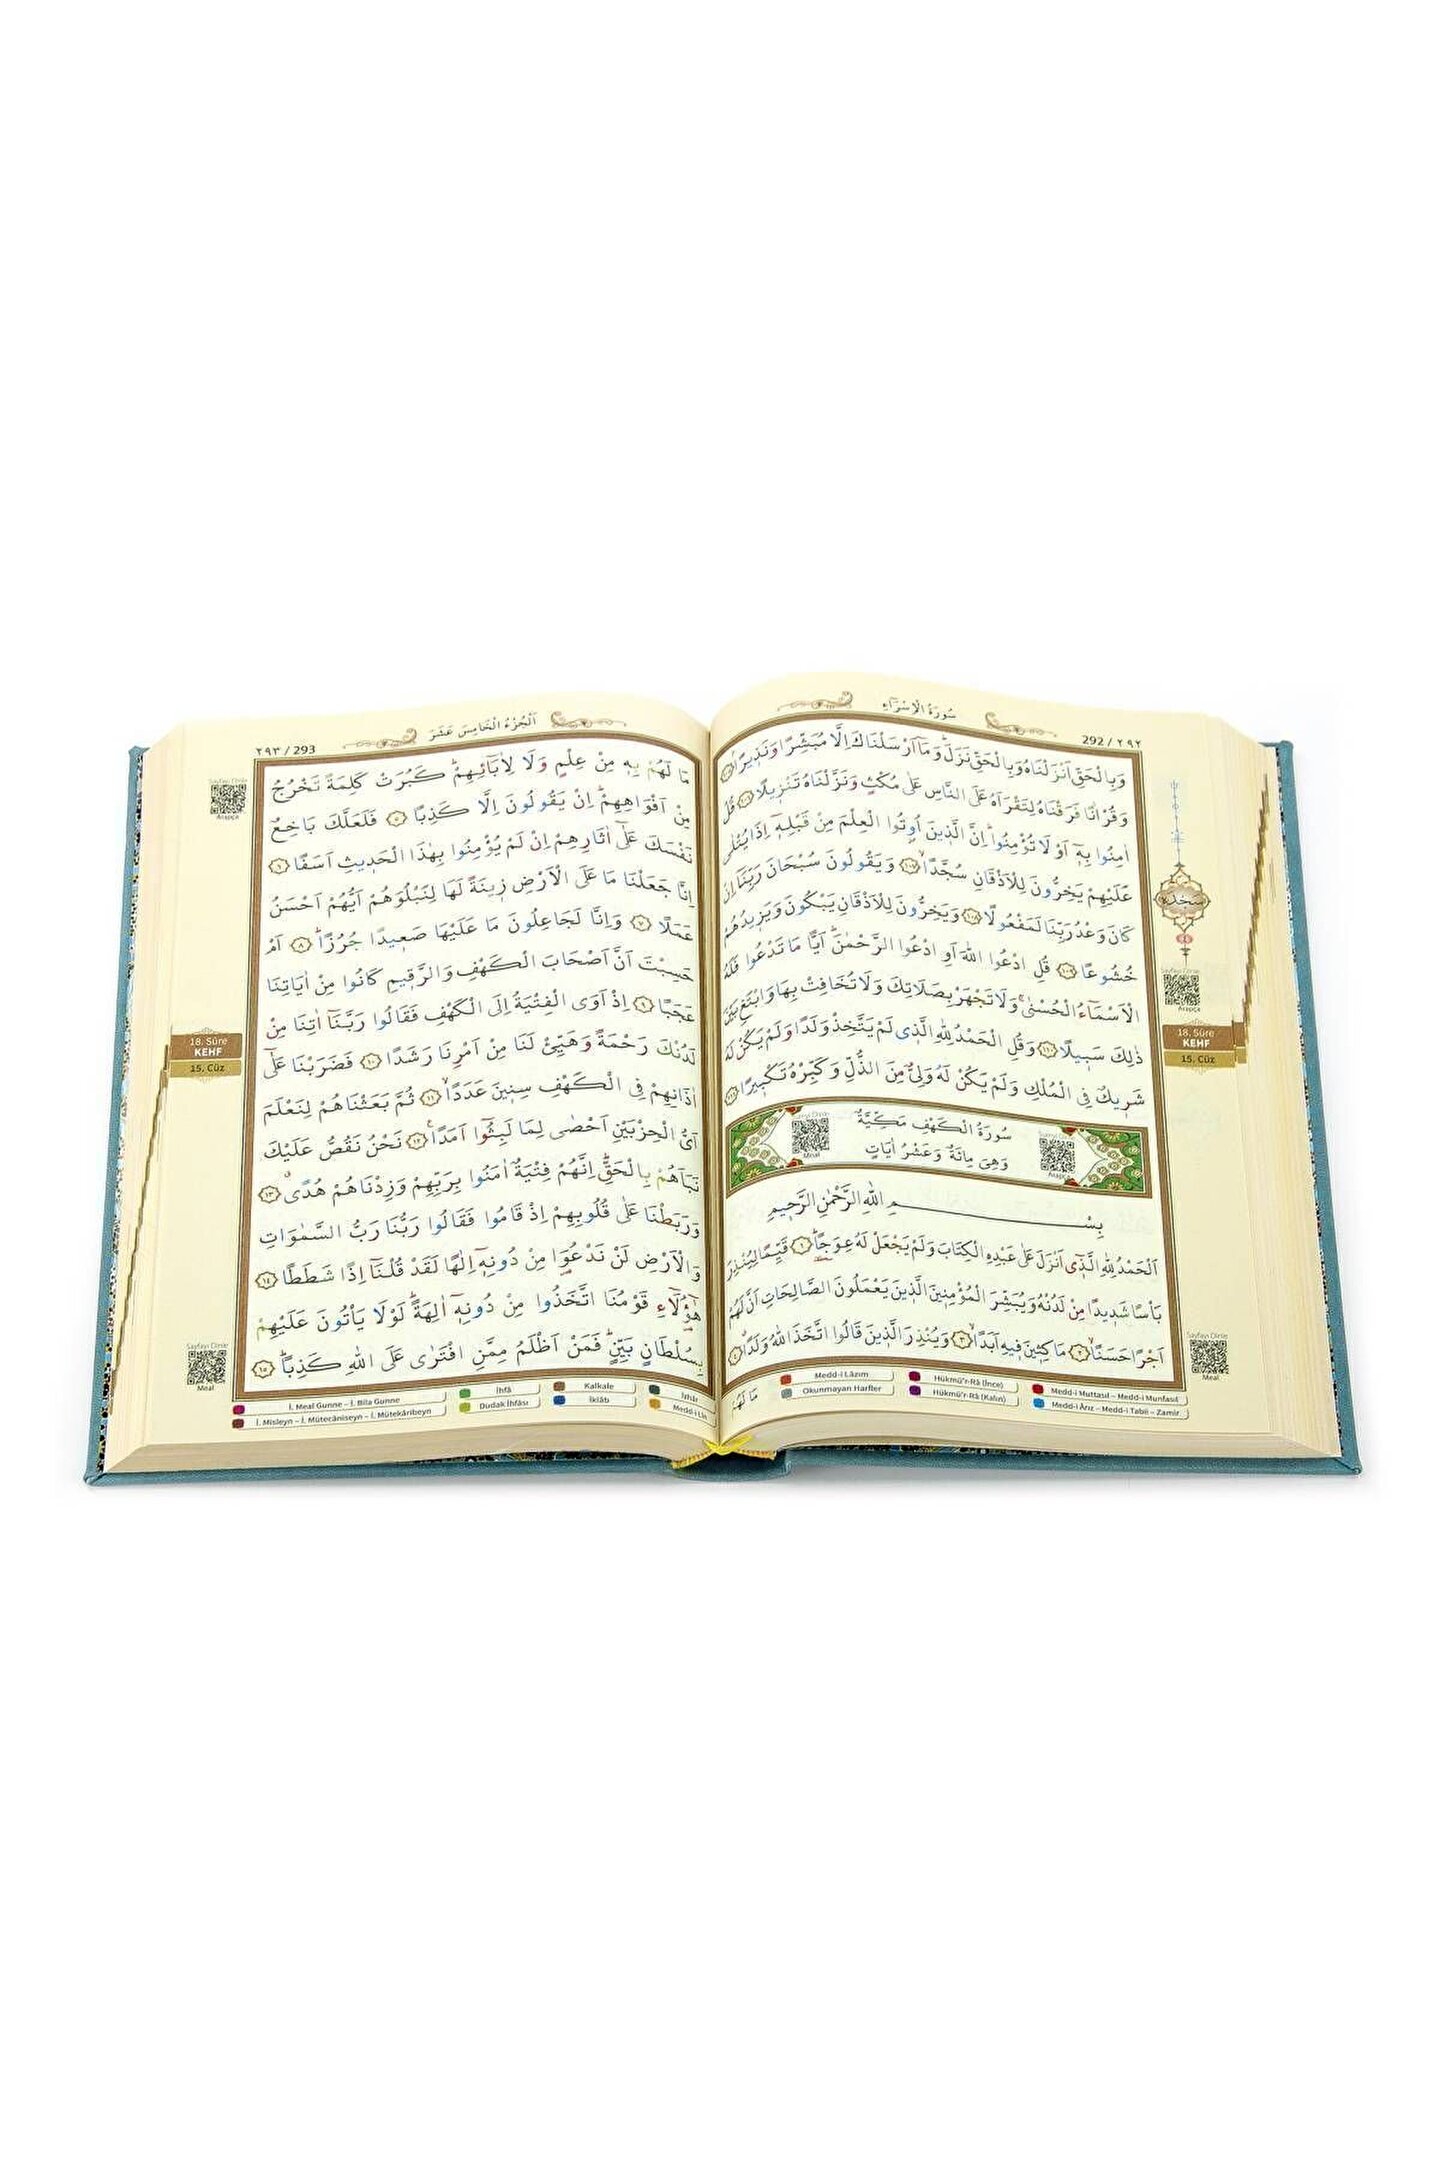 سُورَةُ الْاِسْرَاءِ
292 / ٢٩٢
وَبِالْحَقِّ اَنْزَلْنَاهُ وَبِالْحَقِّ نَزَلَۜ وَمَٓا اَرْسَلْنَاكَ اِلَّا مُبَشِّرًا وَنَذ۪يرًاۢ ﴿١٠٥﴾
وَقُرْاٰنًا فَرَقْنَاهُ لِتَقْرَاَهُ عَلَى النَّاسِ عَلٰى مُكْثٍ وَنَزَّلْنَاهُ تَنْز۪يلًا ﴿١٠٦﴾ قُلْ
اٰمِنُوا بِه۪ٓ اَوْ لَا تُؤْمِنُواۜ اِنَّ الَّذ۪ينَ اُو۫تُوا الْعِلْمَ مِنْ قَبْلِه۪ٓ اِذَا يُتْلٰى
عَلَيْهِمْ يَخِرُّونَ لِلْاَذْقَانِ سُجَّدًاۙ ﴿١٠٧﴾ وَيَقُولُونَ سُبْحَانَ رَبِّنَٓا اِنْ
كَانَ وَعْدُ رَبِّنَا لَمَفْعُولًا ﴿١٠٨﴾ وَيَخِرُّونَ لِلْاَذْقَانِ يَبْكُونَ وَيَز۪يدُهُمْ
خُشُوعًا ﴿١٠٩﴾ قُلِ ادْعُوا اللّٰهَ اَوِ ادْعُوا الرَّحْمٰنَۜ اَيًّا مَا تَدْعُوا فَلَهُ
الْاَسْمَٓاءُ الْحُسْنٰىۚ وَلَا تَجْهَرْ بِصَلَاتِكَ وَلَا تُخَافِتْ بِهَا وَابْتَغِ بَيْنَ
ذٰلِكَ سَب۪يلًا ﴿١١٠﴾ وَقُلِ الْحَمْدُ لِلّٰهِ الَّذ۪ي لَمْ يَتَّخِذْ وَلَدًا وَلَمْ يَكُنْ لَهُ
شَر۪يكٌ فِي الْمُلْكِ وَلَمْ يَكُنْ لَهُ وَلِيٌّ مِنَ الذُّلِّ وَكَبِّرْهُ تَكْب۪يرًا ﴿١١١﴾
سُورَةُ الْكَهْفِ مَكِّيَّةٌ
وَهِيَ مِائَةٌ وَعَشْرُ اٰيَاتٍ
Meal
بِسْمِ اللّٰهِ الرَّحْمٰنِ الرَّح۪يمِ
اَلْحَمْدُ لِلّٰهِ الَّذ۪ٓي اَنْزَلَ عَلٰى عَبْدِهِ الْكِتَابَ وَلَمْ يَجْعَلْ لَهُ عِوَجًاۜ ﴿١﴾ قَيِّمًا لِيُنْذِرَ
بَاْسًا شَد۪يدًا مِنْ لَدُنْهُ وَيُبَشِّرَ الْمُؤْمِن۪ينَ الَّذ۪ينَ يَعْمَلُونَ الصَّالِحَاتِ اَنَّ لَهُمْ
اَجْرًا حَسَنًاۙ ﴿٢﴾ مَاكِث۪ينَ ف۪يهِ اَبَدًاۙ ﴿٣﴾ وَيُنْذِرَ الَّذ۪ينَ قَالُوا اتَّخَذَ اللّٰهُ وَلَدًاۗ ﴿٤﴾
مَا لَهُمْ
سجدة
Sayfayı Dinle
Arapça
18. Sûre
KEHF
15. Cüz
Sayfayı Dinle
Meal
Medd-i Lâzım
Hükmü'r-Râ (İnce)
Medd-i Muttasıl – Medd-i Munfasıl
Okunmayan Harfler
Hükmü'r-Râ (Kalın)
Medd-i Ârız – Medd-i Tabîi – Zamir
اَلْجُزْءُ الْخَامِسَ عَشَرَ
٢٩٣ / 293
مَا لَهُمْ بِه۪ مِنْ عِلْمٍ وَلَا لِاٰبَٓائِهِمْۜ كَبُرَتْ كَلِمَةً تَخْرُجُ
مِنْ اَفْوَاهِهِمْۜ اِنْ يَقُولُونَ اِلَّا كَذِبًا ﴿٥﴾ فَلَعَلَّكَ بَاخِعٌ
نَفْسَكَ عَلٰٓى اٰثَارِهِمْ اِنْ لَمْ يُؤْمِنُوا بِهٰذَا الْحَد۪يثِ اَسَفًا ﴿٦﴾
اِنَّا جَعَلْنَا مَا عَلَى الْاَرْضِ ز۪ينَةً لَهَا لِنَبْلُوَهُمْ اَيُّهُمْ اَحْسَنُ
عَمَلًا ﴿٧﴾ وَاِنَّا لَجَاعِلُونَ مَا عَلَيْهَا صَع۪يدًا جُرُزًاۜ ﴿٨﴾ اَمْ
حَسِبْتَ اَنَّ اَصْحَابَ الْكَهْفِ وَالرَّق۪يمِ كَانُوا مِنْ اٰيَاتِنَا
عَجَبًا ﴿٩﴾ اِذْ اَوَى الْفِتْيَةُ اِلَى الْكَهْفِ فَقَالُوا رَبَّنَٓا اٰتِنَا مِنْ
لَدُنْكَ رَحْمَةً وَهَيِّئْ لَنَا مِنْ اَمْرِنَا رَشَدًا ﴿١٠﴾ فَضَرَبْنَا عَلٰٓى
اٰذَانِهِمْ فِي الْكَهْفِ سِن۪ينَ عَدَدًاۙ ﴿١١﴾ ثُمَّ بَعَثْنَاهُمْ لِنَعْلَمَ
اَيُّ الْحِزْبَيْنِ اَحْصٰى لِمَا لَبِثُٓوا اَمَدًا۟ ﴿١٢﴾ نَحْنُ نَقُصُّ عَلَيْكَ
نَبَاَهُمْ بِالْحَقِّۜ اِنَّهُمْ فِتْيَةٌ اٰمَنُوا بِرَبِّهِمْ وَزِدْنَاهُمْ هُدًىۗ ﴿١٣﴾
وَرَبَطْنَا عَلٰى قُلُوبِهِمْ اِذْ قَامُوا فَقَالُوا رَبُّنَا رَبُّ السَّمٰوَاتِ
وَالْاَرْضِ لَنْ نَدْعُوَ۬ا مِنْ دُونِه۪ٓ اِلٰهًا لَقَدْ قُلْنَٓا اِذًا شَطَطًا ﴿١٤﴾
هٰٓؤُ۬لَٓاءِ قَوْمُنَا اتَّخَذُوا مِنْ دُونِه۪ٓ اٰلِهَةًۜ لَوْلَا يَاْتُونَ عَلَيْهِمْ
بِسُلْطَانٍ بَيِّنٍۜ فَمَنْ اَظْلَمُ مِمَّنِ افْتَرٰى عَلَى اللّٰهِ كَذِبًاۜ ﴿١٥﴾
Sayfayı Dinle
Arapça
18. Sûre
KEHF
15. Cüz
Sayfayı Dinle
Meal
İ. Meal Gunne – İ. Bila Gunne
İhfâ
Kalkale
İzhâr
İ. Misleyn – İ. Mütecâniseyn – İ. Mütekâribeyn
Dudak İhfâsı
İklâb
Medd-i Lîn